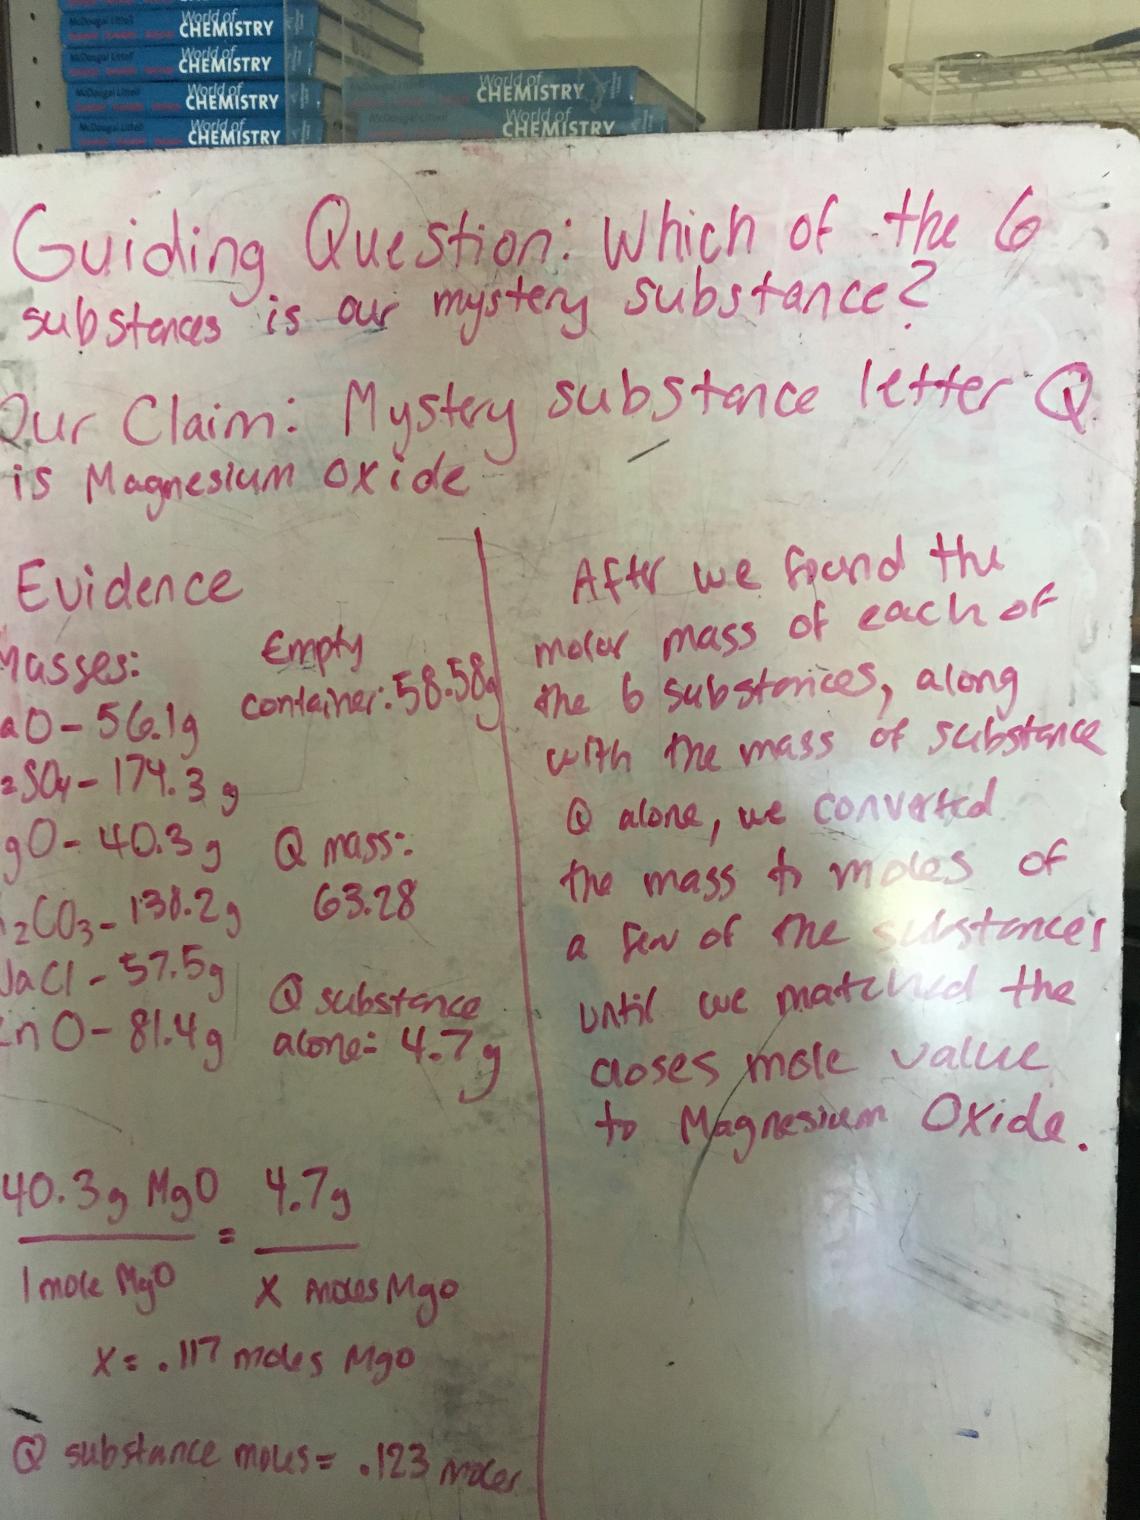 World of
CHEMISTRY
McDougal Littell
World of
CHEMISTRY
McDougal Littell
World of
CHEMISTRY
McDougal Littell
World of
CHEMISTRY
World of
CHEMISTRY
McDougal Littell
World of
CHEMISTRY
Guiding Question: Which of the 6
substances is our mystery substance?
Our Claim: Mystery substance letter Q
is Magnesium Oxide
Evidence
Masses:
aO - 56.1g
2SO4 - 174.3 g
gO - 40.3 g
2CO3 - 138.2g
NaCl - 57.5g
ZnO - 81.4g
Empty
container: 58.58g
Q mass:
63.28
Q substance
alone: 4.7g
40.3g MgO = 4.7g
1 mole MgO x moles MgO
x = .117 moles MgO
Q substance moles = .123 moles
After we found the
molar mass of each of
the 6 substances, along
with the mass of substance
Q alone, we converted
the mass to moles of
a few of the substances
until we matched the
closes mole value
to Magnesium Oxide.